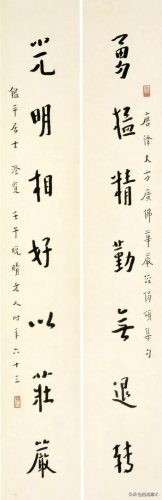 唐譯大方廣佛華嚴經偈頌集句
勇猛精勤無退轉
光明相好以莊嚴
平居士澄覽 壬午晚晴老人時年六十三